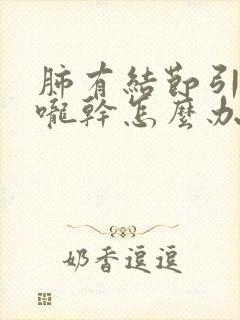 肺有結節引
嚨幹怎麼办
奶香逗逗